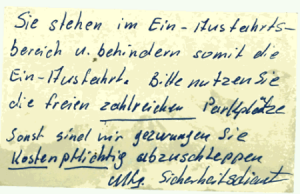 Sie stehen im Ein-Ausfahrts-
bereich u. behindern somit die
Ein-Ausfahrt. Bitte nutzen Sie
die freien zahlreichen Parkplätze
Sonst sind wir gezwungen Sie
Kostenpflichtig abzuschleppen
Sicherheitsdienst